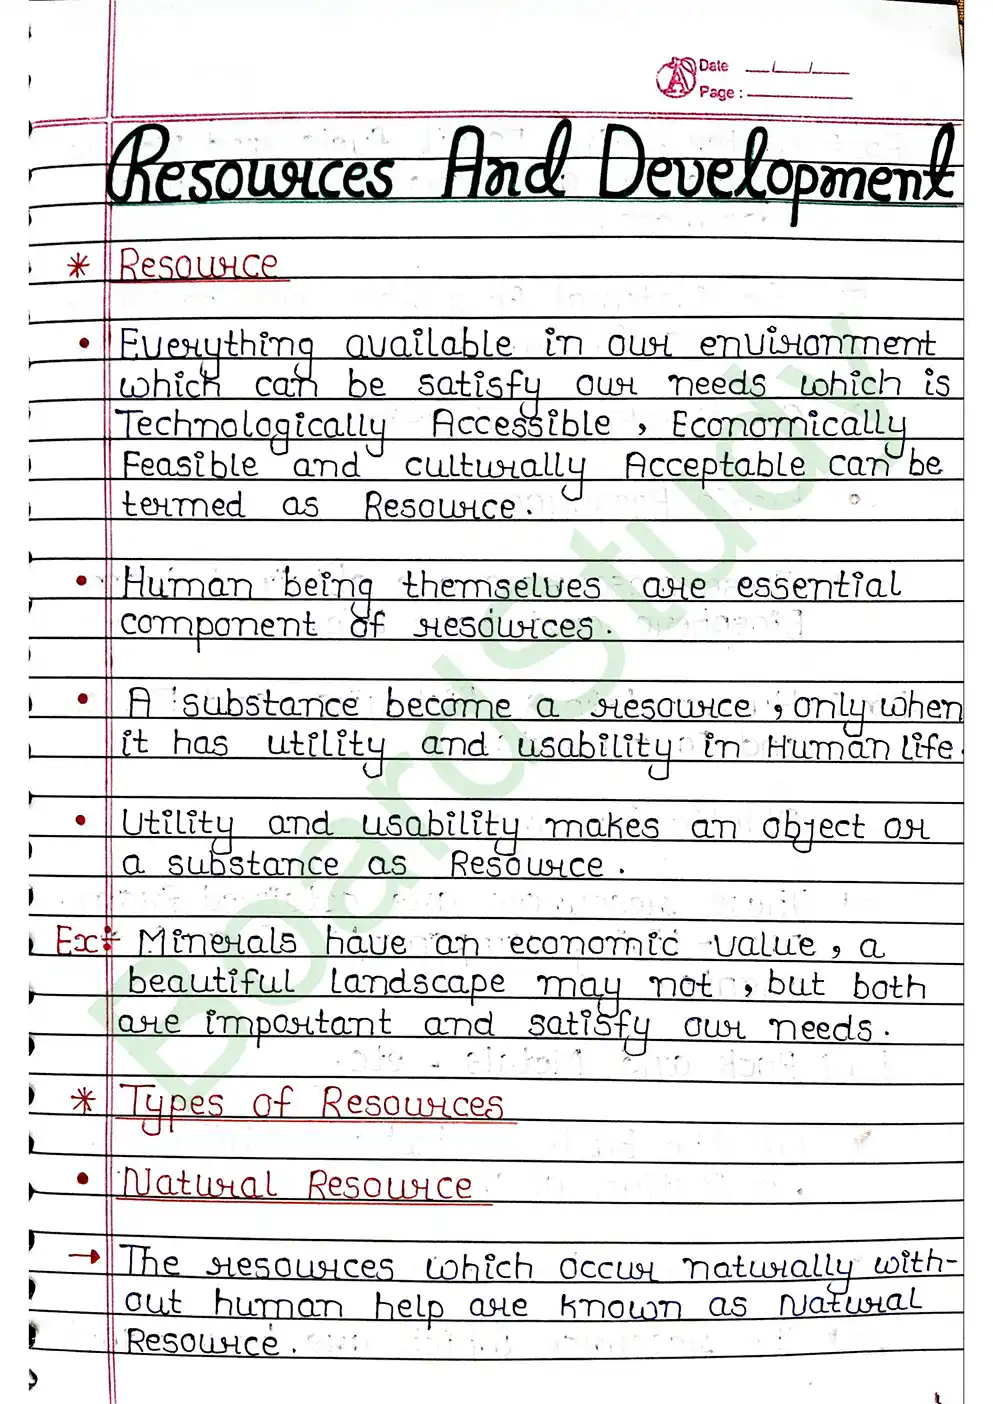 Date __/__/__
Page : ______
Resources And Development
* Resource
• Everything available in our environment
which can be satisfy our needs which is
Technologically Accessible, Economically
Feasible and culturally Acceptable can be
termed as Resource.
• Human being themselves are essential
component of resources.
• A substance become a resource, only when
it has utility and usability in Human life.
• Utility and usability makes an object or
a substance as Resource.
Ex:- Minerals have an economic value, a
beautiful landscape may not, but both
are important and satisfy our needs.
* Types of Resources
• Natural Resource
→ The resources which occur naturally with-
out human help are known as Natural
Resource.
Boardstudy